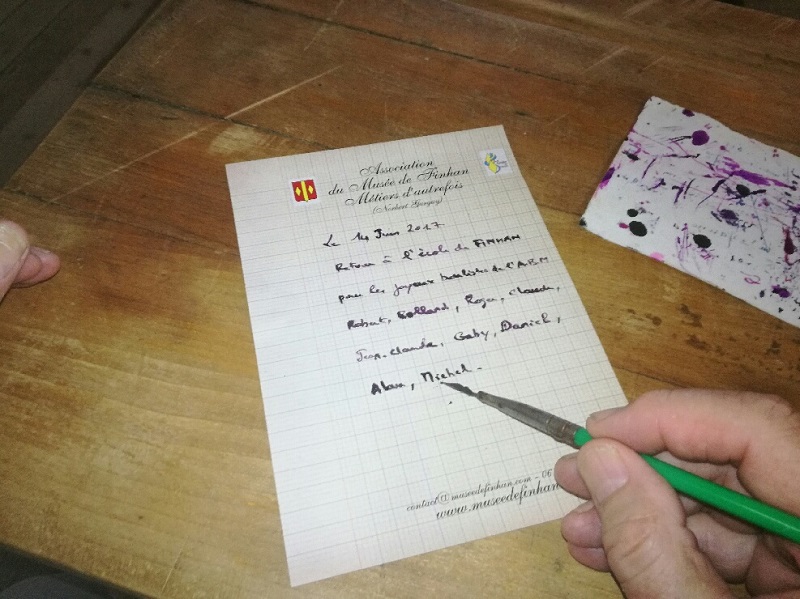 Association
du Musée de Finhan
Métiers d'autrefois
(Norbert Gorgey)
Le 14 Juin 2017
Retour à l'école de FINHAN
pour les joyeux boulistes de l'ABM
Robert, Rolland, Roger, Claude,
Jean-Claude, Gaby, Daniel,
Alain, Michel.
contact@museedefinhan.com - 06
www.museedefinhan